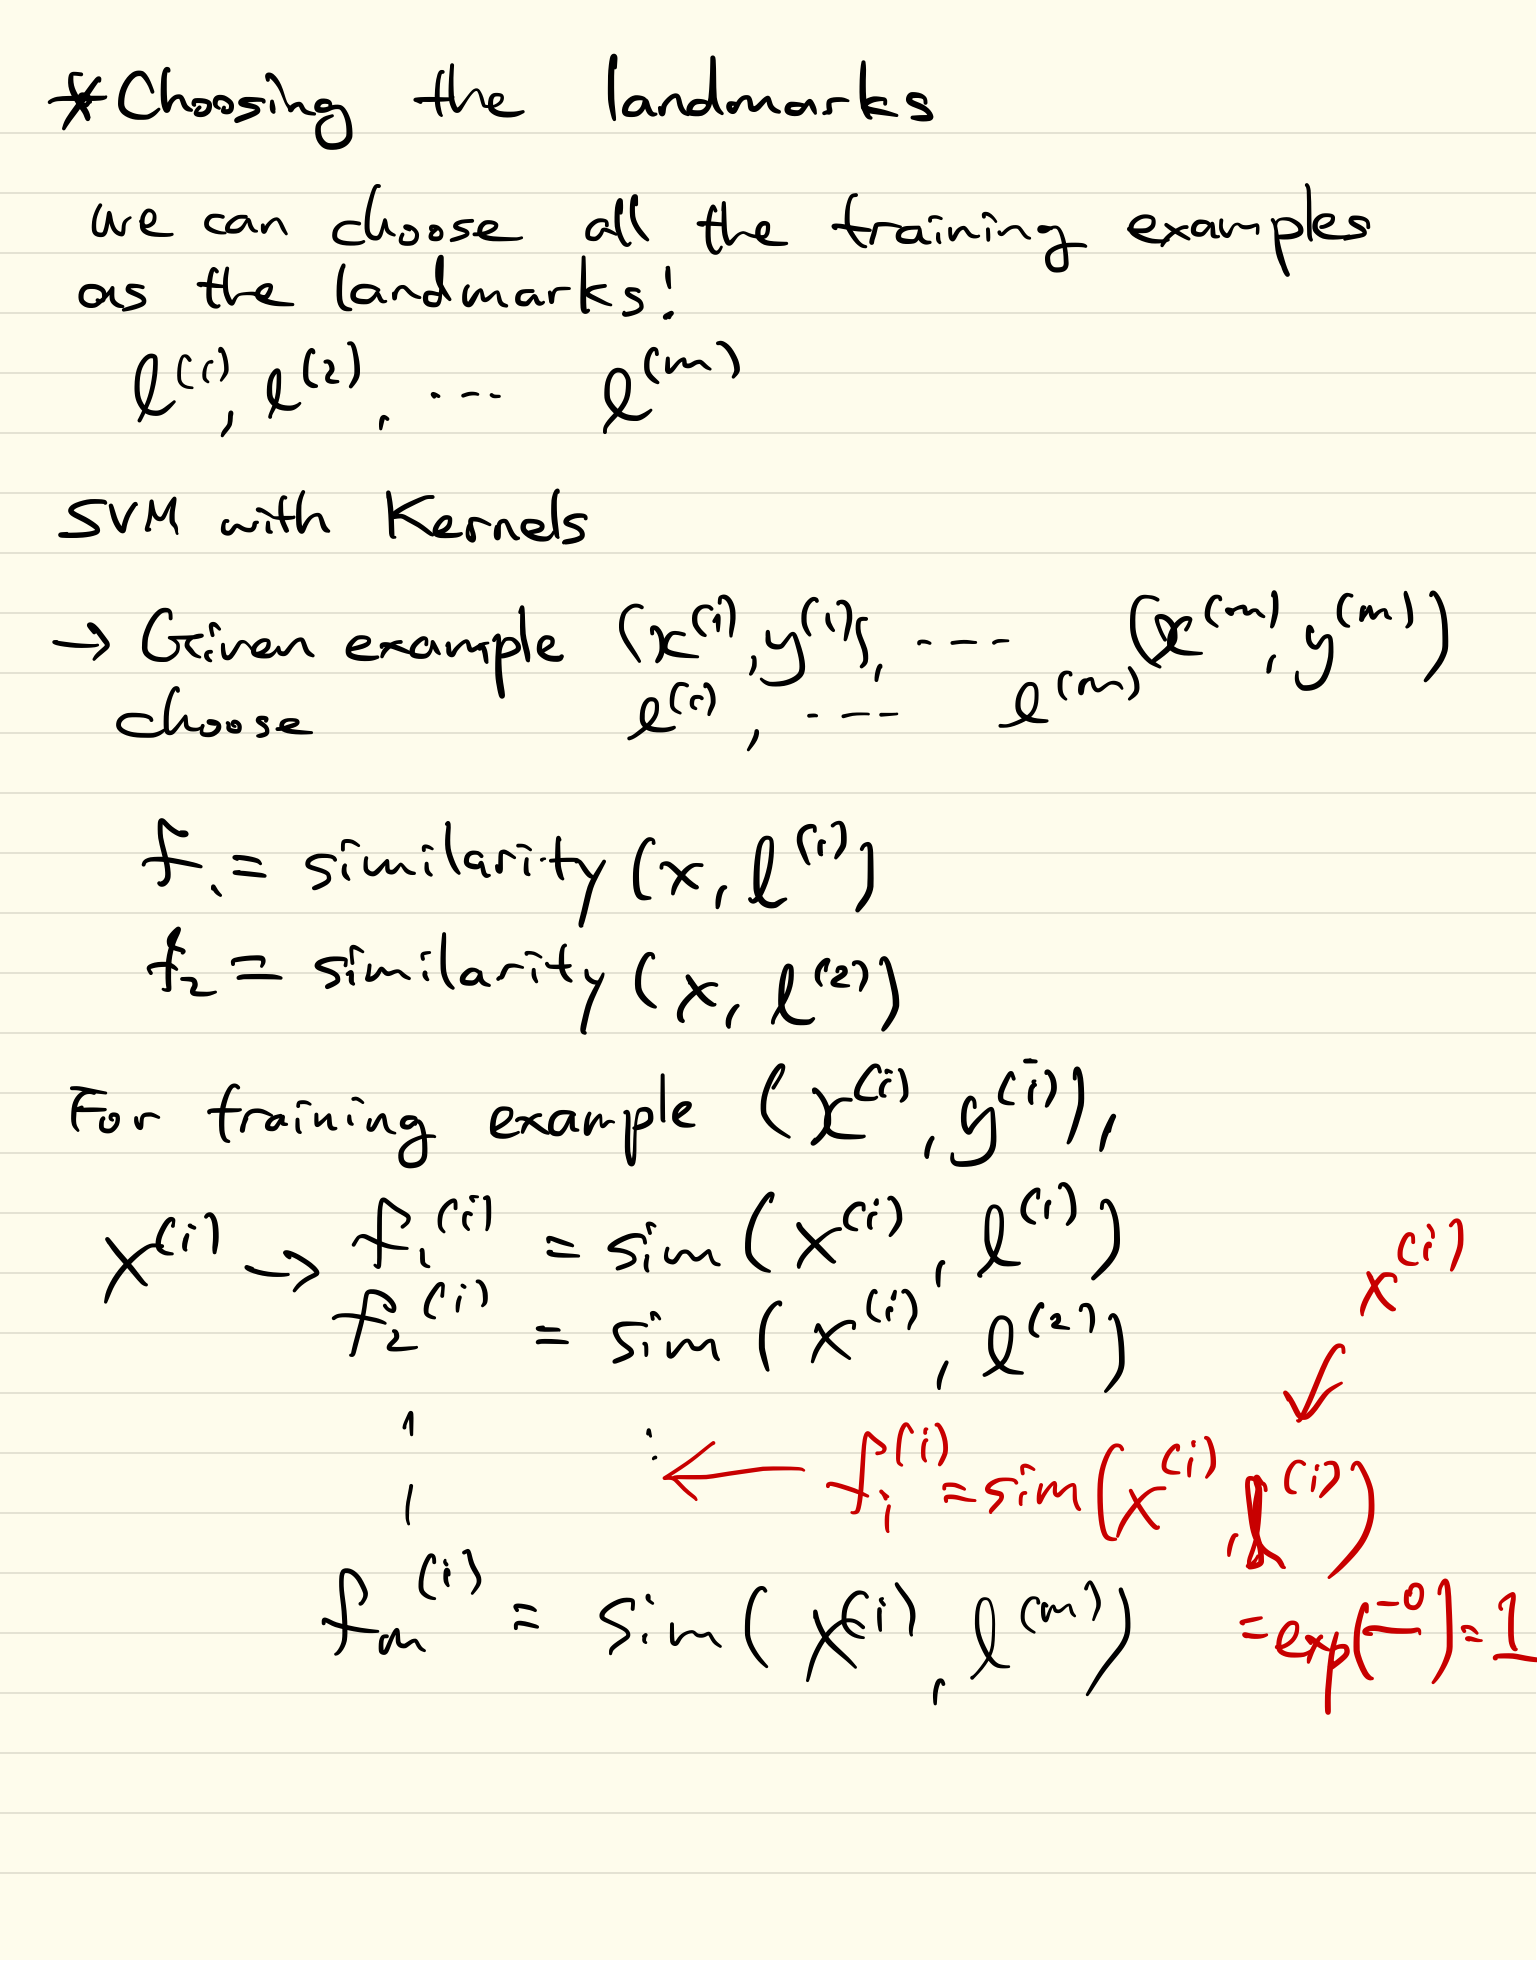 *Choosing the landmarks
we can choose all the training examples
as the landmarks!
l^(1), l^(2), ---- l^(m)
SVM with Kernels
→ Given example (x^(1), y^(1)), ---- (x^(m), y^(m))
choose l^(1), ---- l^(m)
f₁ = similarity (x, l^(1))
f₂ = similarity (x, l^(2))
For training example (x^(i), y^(i)),
x^(i) → f₁^(i) = sim (x^(i), l^(1))
x^(i)
f₂^(i) = sim (x^(i), l^(2))
← f_i^(i) = sim(x^(i), l^(i))
f_m^(i) = sim (x^(i), l^(m))
= exp(-0/) = 1